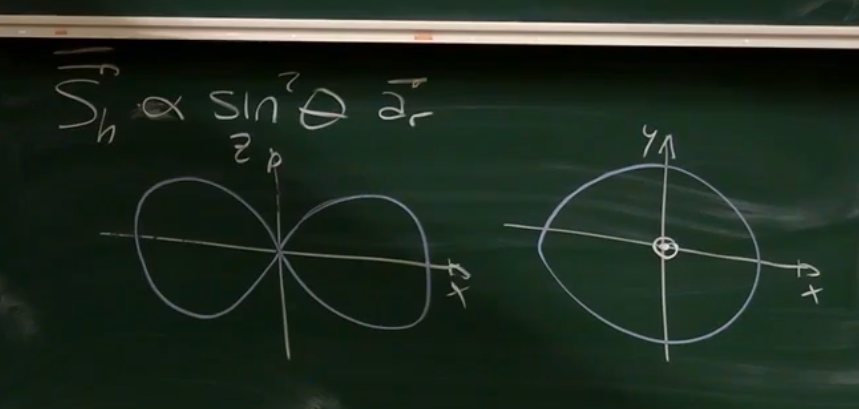 S̄⃗ₕ ∝ sin²θ a⃗ᵣ
z
y
x
x